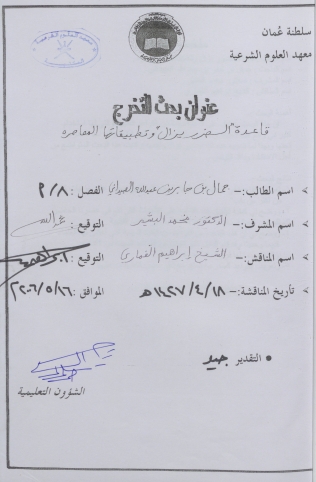 سلطنة عُمان
معهد العلوم الشرعية
عنوان بحث التخرج
قاعدة "الضرر يزال" وتطبيقاتها المعاصرة
اسم الطالب:- جمال بن جابر بن عبدالله الفصل: ٩/٨
اسم المشرف:- الدكتور محمد البشير التوقيع:
اسم المناقش:- الشيخ إبراهيم التوقيع:
تاريخ المناقشة:- ١٤٢٧/٤/١٨هـ الموافق: ٢٠٠٦/٥/١٦
التقدير جيد
الشؤون التعليمية